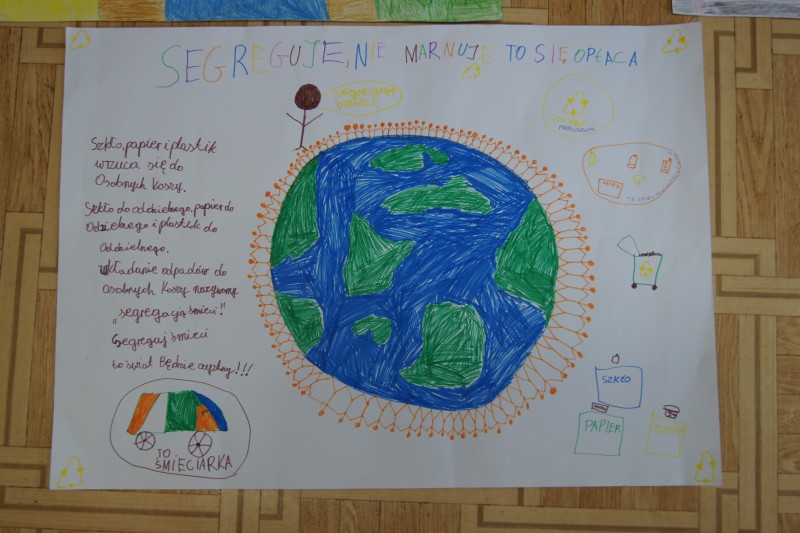 SEGREGUJE, NIE MARNUJE TO SIĘ OPŁACA
Segregujcie
śmieci
Szkło, papier i plastik
wrzuca się do
Osobnych Koszy.
Szkło do oddzielnego, papier do
Oddzielnego i plastik do
oddzielnego.
Wkładanie odpadów do
osobnych Koszy nazywamy
„segregacją śmieci!"
Segreguj śmieci
to świat Będzie czystrzy!!!
TO
ŚMIECIARKA
SZKŁO
PAPIER